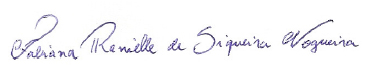 Fabiana Ranielle de Siqueira Nogueira